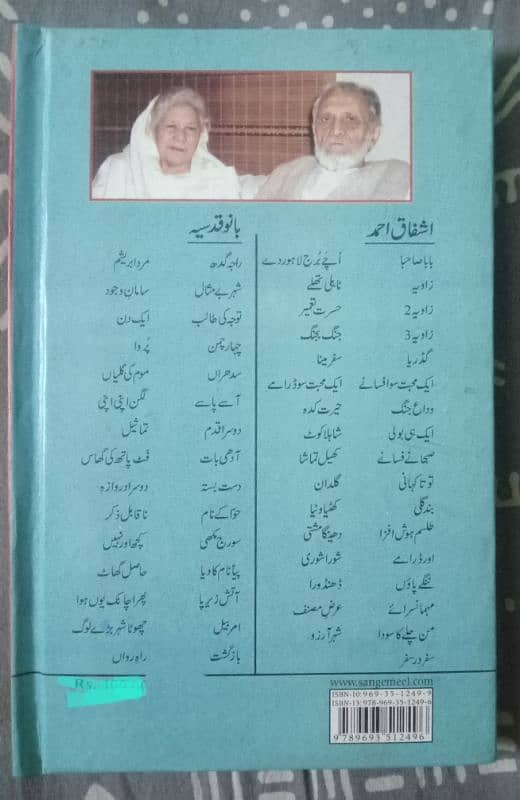 اشفاق احمد
بابا صاحبا
زاویہ
زاویہ 2
زاویہ 3
گڈریا
ایک محبت سو افسانے
وداع جنگ
ایک ہی بولی
صبحانے فسانے
توتا کہانی
بند گلی
طلسم ہوش افزا
اور ڈرامے
ننگے پاؤں
مہمانسرائے
من چلے کا سودا
سفر در سفر
اُچے بُرج لاہور دے
ٹاہلی تھلے
حسرت تعمیر
جنگ بجنگ
سفر مینا
ایک محبت سو ڈرامے
حیرت کدہ
شاہلا کوٹ
کھیل تماشا
گلدان
کھٹیا وٹیا
دھینگا مشتی
شورا شوری
ڈھنڈورا
عرض مصنف
شہر آرزو
بانو قدسیہ
راجہ گدھ
شہر بے مثال
توجہ کی طالب
چہار چمن
سدھراں
آسے پاسے
دوسرا قدم
آدھی بات
دست بستہ
حوّا کے نام
سورج مکھی
پیا نام کا دیا
آتش زیر پا
امر بیل
بازگشت
مرد ابریشم
سامان وجود
ایک دن
پُروا
موم کی گلیاں
لگن اپنی اپنی
تماثیل
فٹ پاتھ کی گھاس
دوسرا دروازہ
ناقابل ذکر
کچھ اور نہیں
حاصل گھاٹ
پھر اچانک یوں ہوا
چھوٹا شہر بڑے لوگ
راہ رواں
Rs.
www.sangemeel.com
ISBN-10: 969-35-1249-9
ISBN-13: 978-969-35-1249-6
9 789693 512496